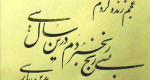 عجم زنده کردم
بسی رنج بردم درین سال سی